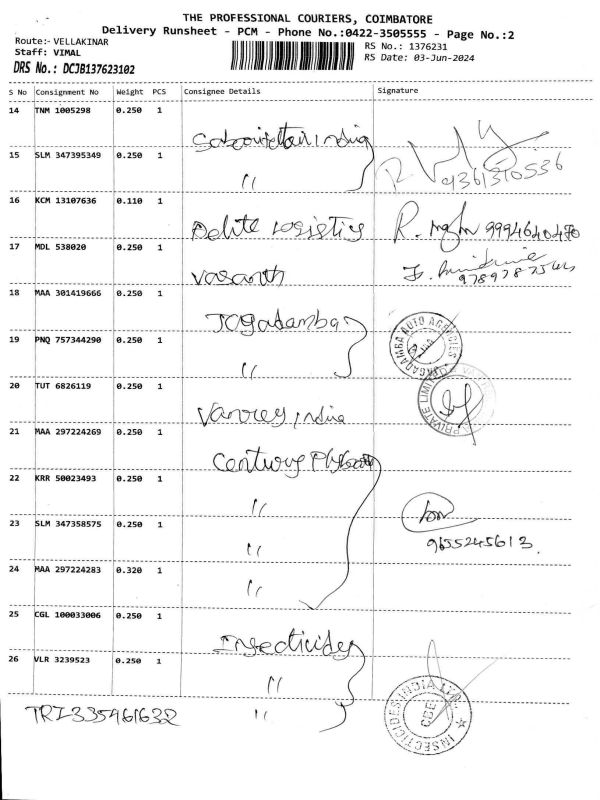 THE PROFESSIONAL COURIERS, COIMBATORE
Delivery Runsheet - PCM - Phone No.:0422-3505555 - Page No.:2
Route:- VELLAKINAR
RS No.: 1376231
Staff: VIMAL
RS Date: 03-Jun-2024
DRS No.: DCJB137623102
S No Consignment No Weight PCS Consignee Details Signature
14 TNM 1005298 0.250 1 India
15 SLM 347395349 0.250 1 "
9361310536
16 KCM 13107636 0.110 1 Delite Logistics
9994640470
17 MDL 538020 0.250 1 Vasanth
18 MAA 301419666 0.250 1 Jagadamba
JAGADAMBA AUTO AGENCIES
19 PNQ 757344290 0.250 1 "
20 TUT 6826119 0.250 1 India
PRIVATE LIMITED
21 MAA 297224269 0.250 1 Century
22 KRR 50023493 0.250 1 "
23 SLM 347358575 0.250 1 "
9655245613.
24 MAA 297224283 0.320 1 "
25 CGL 100033006 0.250 1 Insecticides
26 VLR 3239523 0.250 1 "
INSECTICIDES INDIA LTD. ★ CBE
TRZ-335461632 "